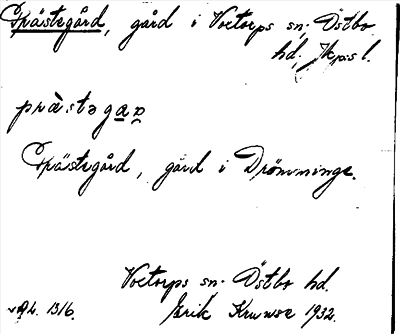 Prästegård, gård i Voxtorps sn; Östbo
hd; Jkps l.
prà̀stəgaꞃ
Prästegård, gård i Drömminge.
Voxtorps sn. Östbo hd.
AL. 1316. Erik Krunse 1932.